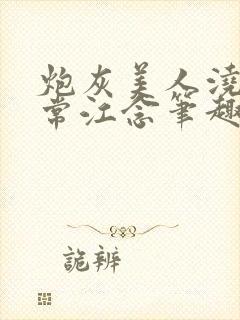 炮灰美人浇
常江念笔趣
诡辨